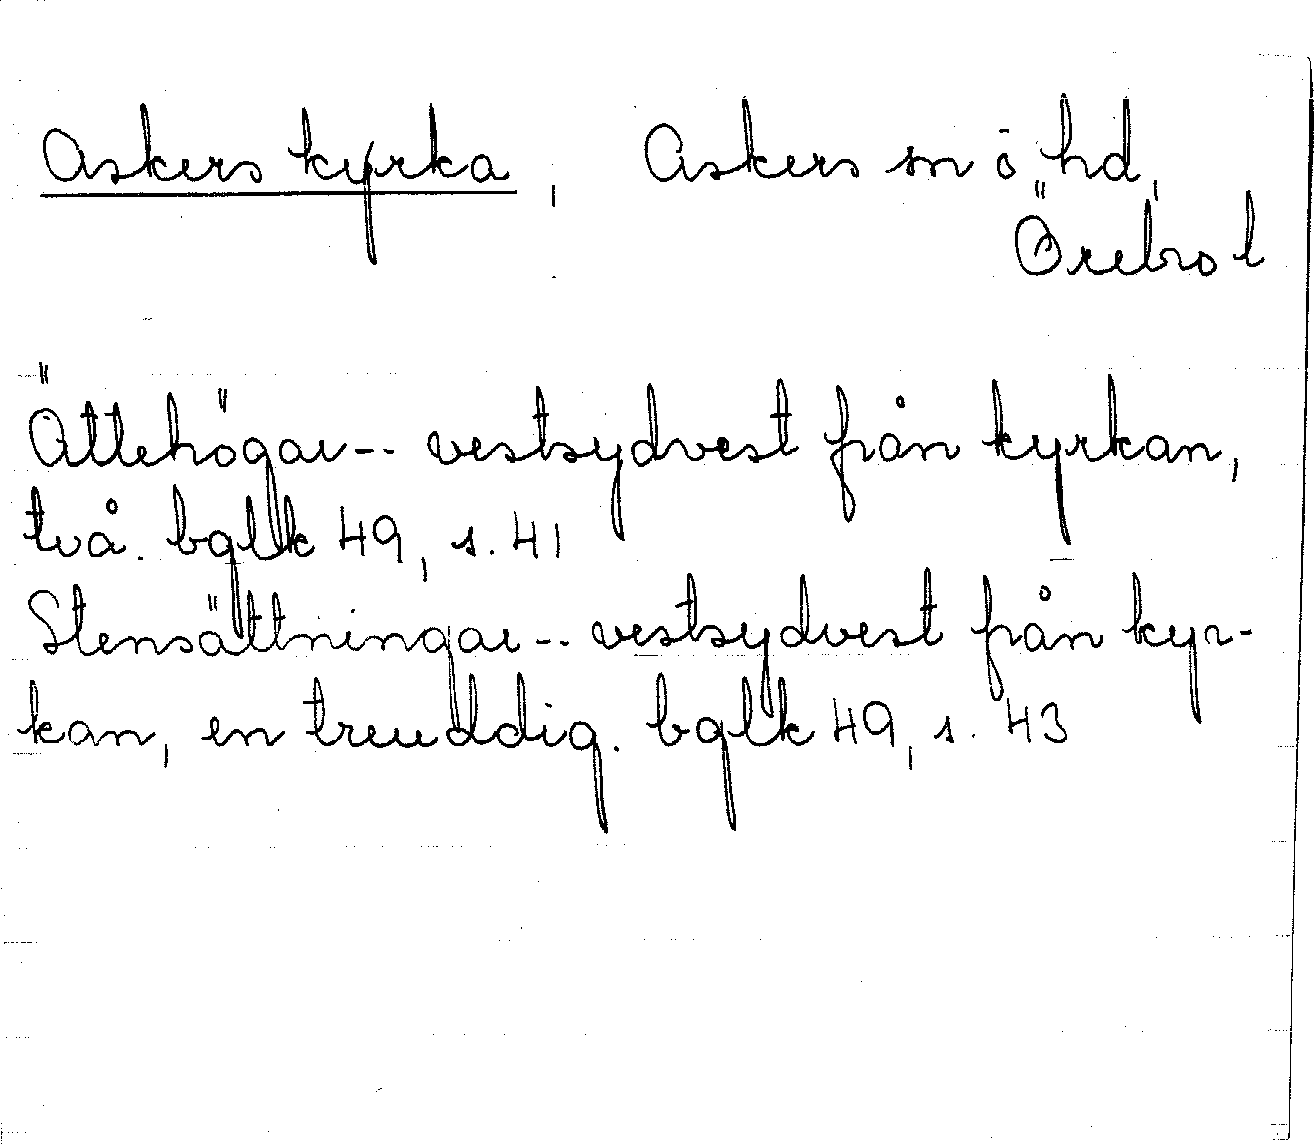 Askers kyrka, Askers sn o hd,
Örebro l
Ättehögar -- vestsydvest från kyrkan,
två. bglk 49, s. 41
Stensättningar -- vestsydvest från kyr-
kan, en treuddig. bglk 49, s. 43